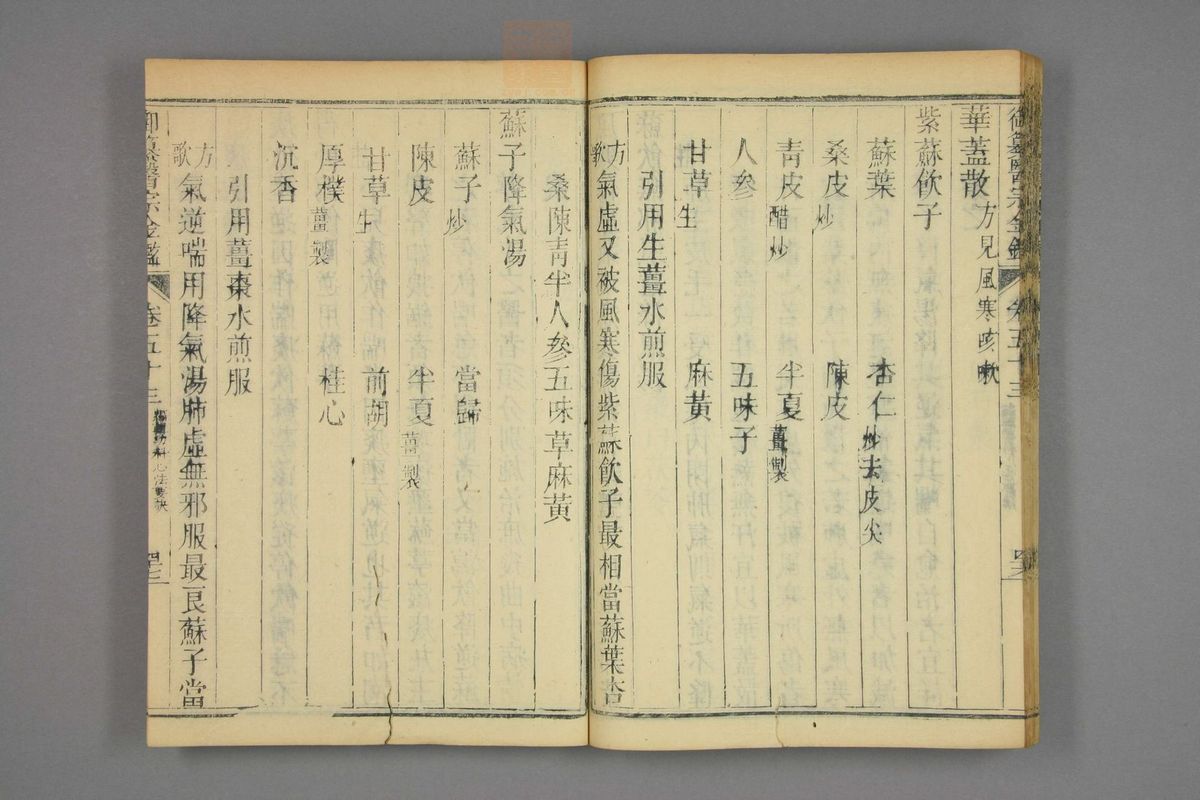 御纂醫宗金鑑 卷五十三
華蓋散 方見風寒咳嗽
紫蘇飲子
蘇葉 杏仁 炒去皮尖
桑皮 炒 陳皮
青皮 醋炒 半夏 薑製
人參 五味子
甘草 生 麻黃
引用生薑水煎服
方歌 氣虛又被風寒傷紫蘇飲子最相當蘇葉杏
桑陳青半人參五味草麻黃
蘇子降氣湯
蘇子 炒 當歸
陳皮 半夏 薑製
甘草 生 前胡
厚樸 薑製 桂心
沉香
引用薑棗水煎服
方歌 氣逆喘用降氣湯肺虛無邪服最良蘇子當
御纂醫宗金鑑 卷五十三 編輯幼科心法要訣